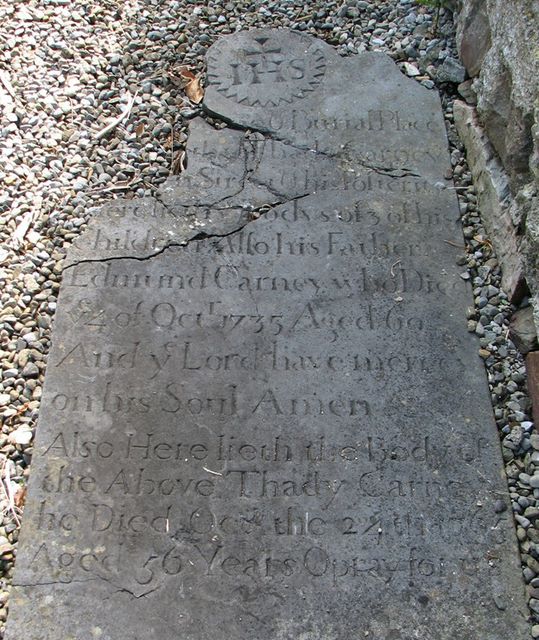 IHS
Burial Place
Thady Carney
of 3 of his
Children Also his Father
Edmund Carney who Died
ye 4 of Octr 1735 Aged 60
And ye Lord have
on his Soul Amen
Also Here lieth the Body of
the Above Thady Carney
he Died the 24 th
Aged 56 Years O pray for